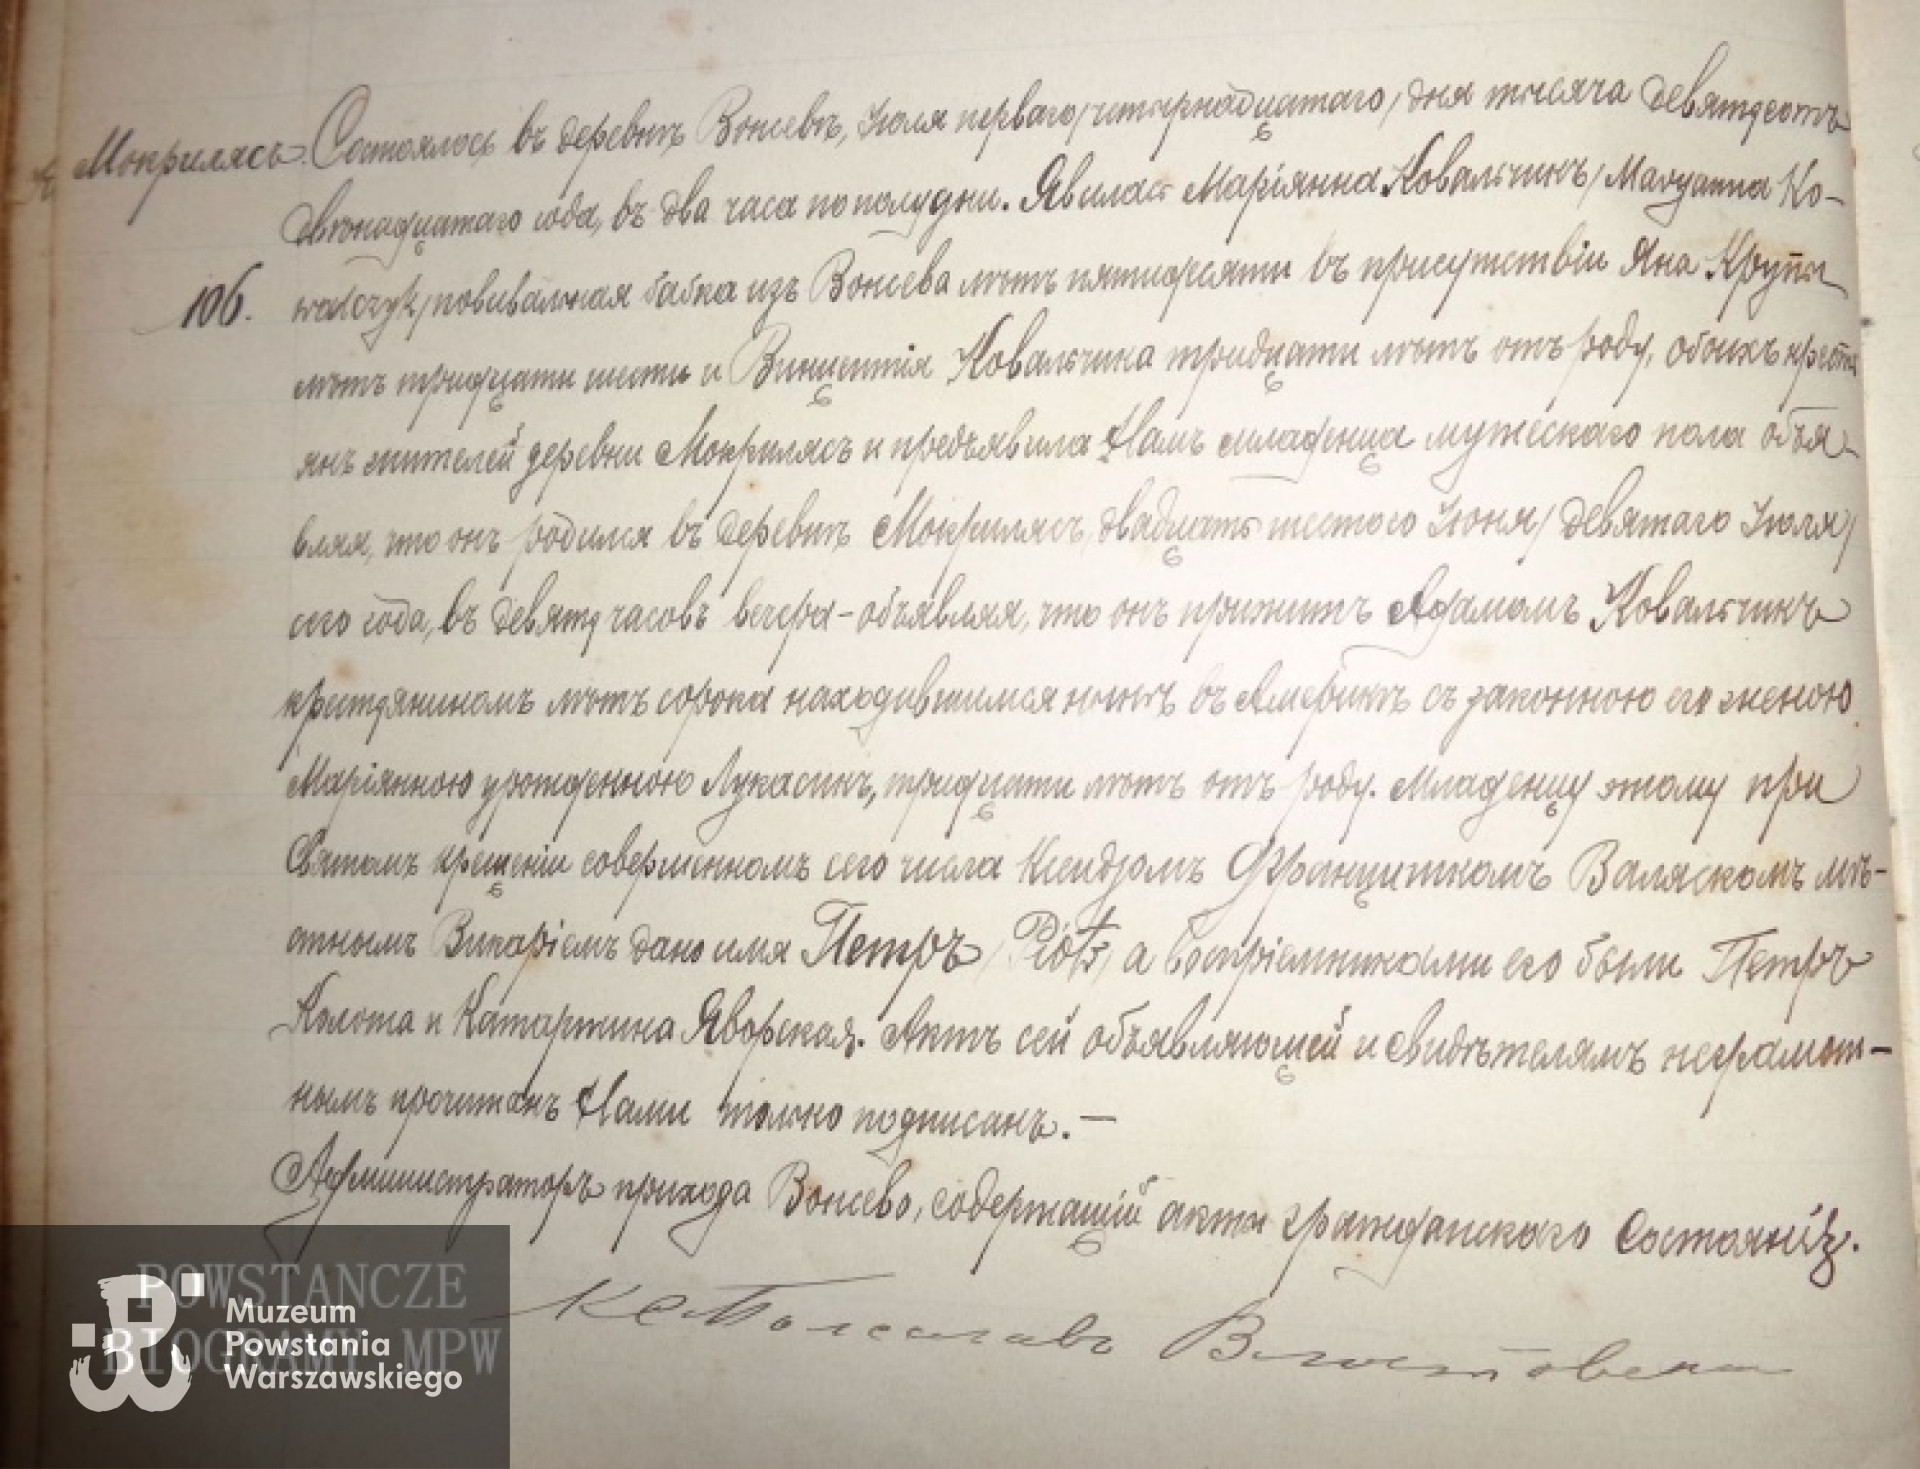 Мокрилясъ. Состоялось въ деревнѣ Вонсевѣ, Іюля перваго /четырнадцатаго/ дня тысяча девятьсотъ
двѣнадцатаго года, въ два часа пополудни. Явилась Маріянна Ковальчикъ /Maryanna Ko-
106.
walczyk/ повивальная бабка изъ Вонсева лѣтъ пятидесяти въ присутствіи Яна Крупы
лѣтъ тридцати шести и Винцентія Ковальчика тридцати лѣтъ отъ роду, обоихъ крестьянъ
янъ жителей деревни Мокрилясъ и предъявила Намъ младенца мужескаго пола объя-
вляя, что онъ родился въ деревнѣ Мокрилясъ, двадцать шестого Іюня /девятаго Іюля/
сего года, въ девять часовъ вечера - объявляя, что онъ прижитъ Адамомъ Ковальчикъ
крестьяниномъ лѣтъ сорока находившимся нынѣ въ Америкѣ съ законною его женою
Маріянною урожденною Лукасикъ, тридцати лѣтъ отъ роду. Младенцу этому при
Святомъ крещеніи совершенномъ сего числа Ксендзомъ Францишкомъ Валяскомъ мѣ-
стнымъ Викаріемъ дано имя Петръ /Piotr/, а воспріемниками его были Петръ
Колота и Катаржина Яворская. Актъ сей объявляющей и свидѣтелямъ неграмот-
нымъ прочитанъ Нами только подписанъ. -
Администраторъ прихода Вонсево, содержащій акты гражданскаго состоянія.
POWSTAŃCZE
BIOGRAMY MPW
Muzeum
Powstania
Warszawskiego